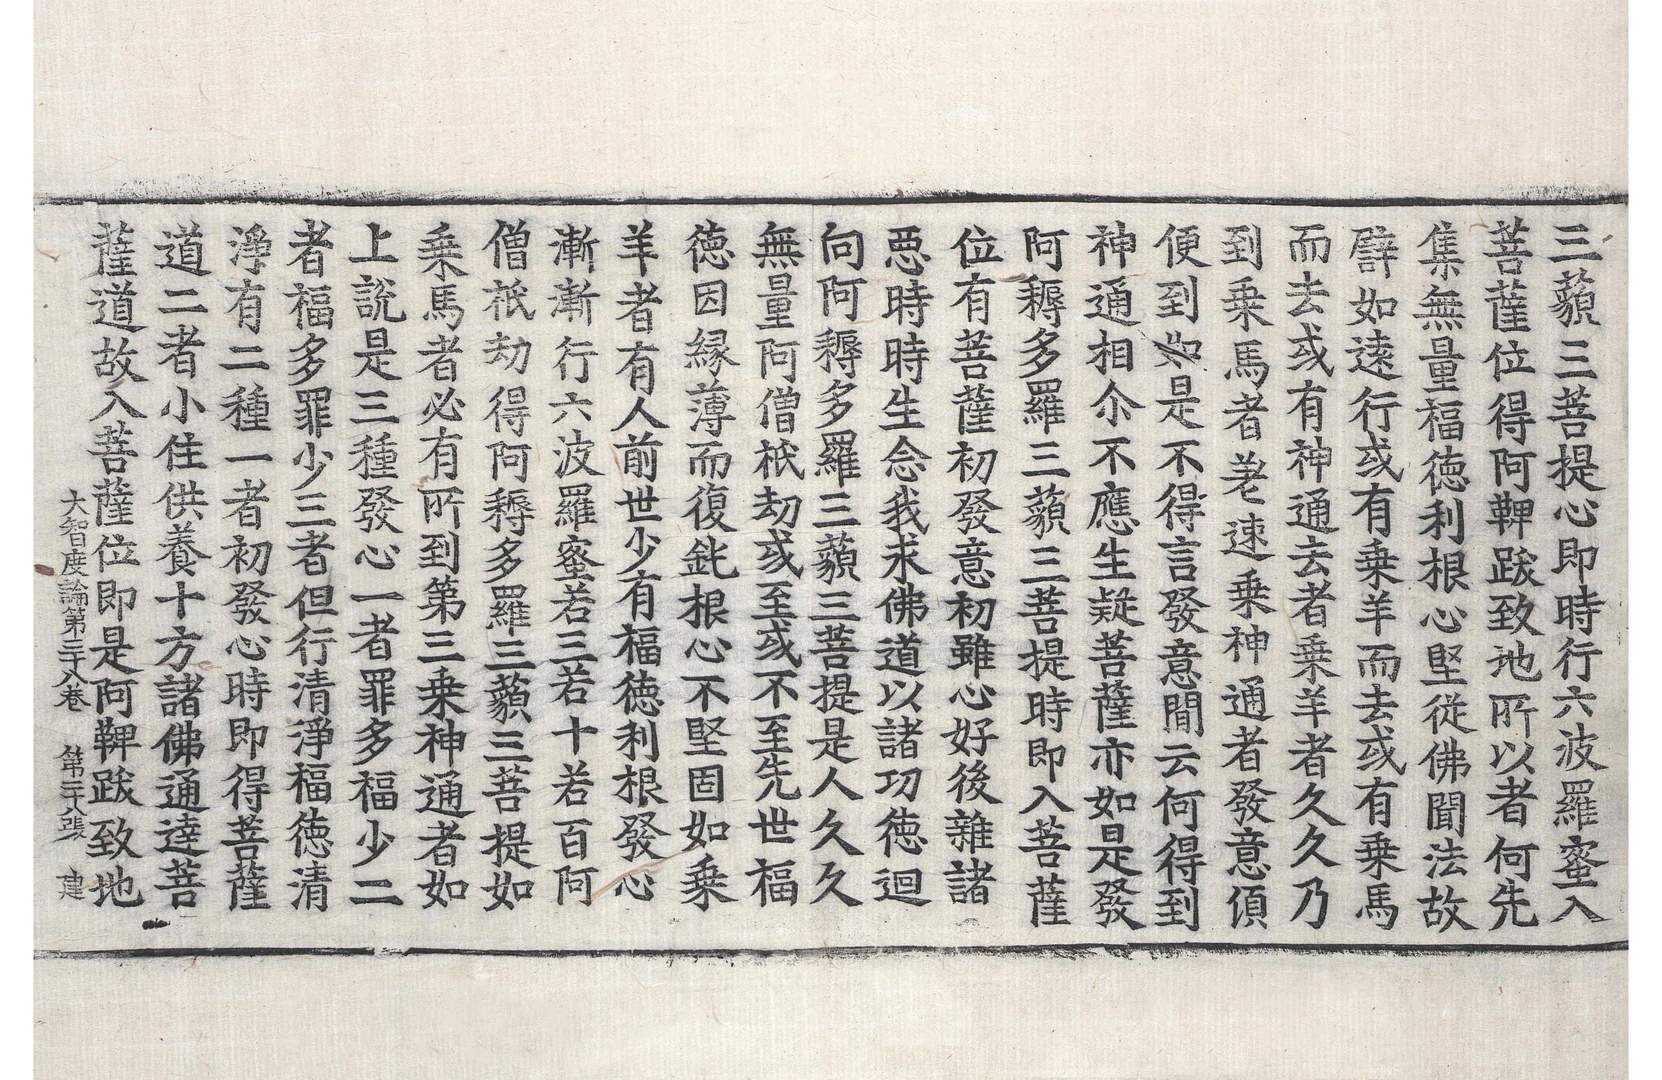 三藐三菩提心即時行六波羅蜜入
菩薩位得阿鞞跋致地所以者何先
集無量福徳利根心堅從佛聞法故
譬如遠行或有乗羊而去或有乗馬
而去或有神通去者乗羊者久久乃
到乗馬者差速乗神通者發意頃
便到如是不得言發意間云何得到
神通相尒不應生疑菩薩亦如是發
阿耨多羅三藐三菩提時即入菩薩
位有菩薩初發意初雖心好後雜諸
惡時時生念我求佛道以諸功徳迴
向阿耨多羅三藐三菩提是人久久
無量阿僧祇劫或至或不至先世福
徳因縁薄而復鈍根心不堅固如乗
羊者有人前世少有福徳利根發心
漸漸行六波羅蜜若三若十若百阿
僧祇劫得阿耨多羅三藐三菩提如
乗馬者必有所到第三乗神通者如
上說是三種發心一者罪多福少二
者福多罪少三者但行清淨福徳清
淨有二種一者初發心時即得菩薩
道二者小住供養十方諸佛通達菩
薩道故入菩薩位即是阿鞞跋致地
大智度論第三十八卷 第二十八張 建